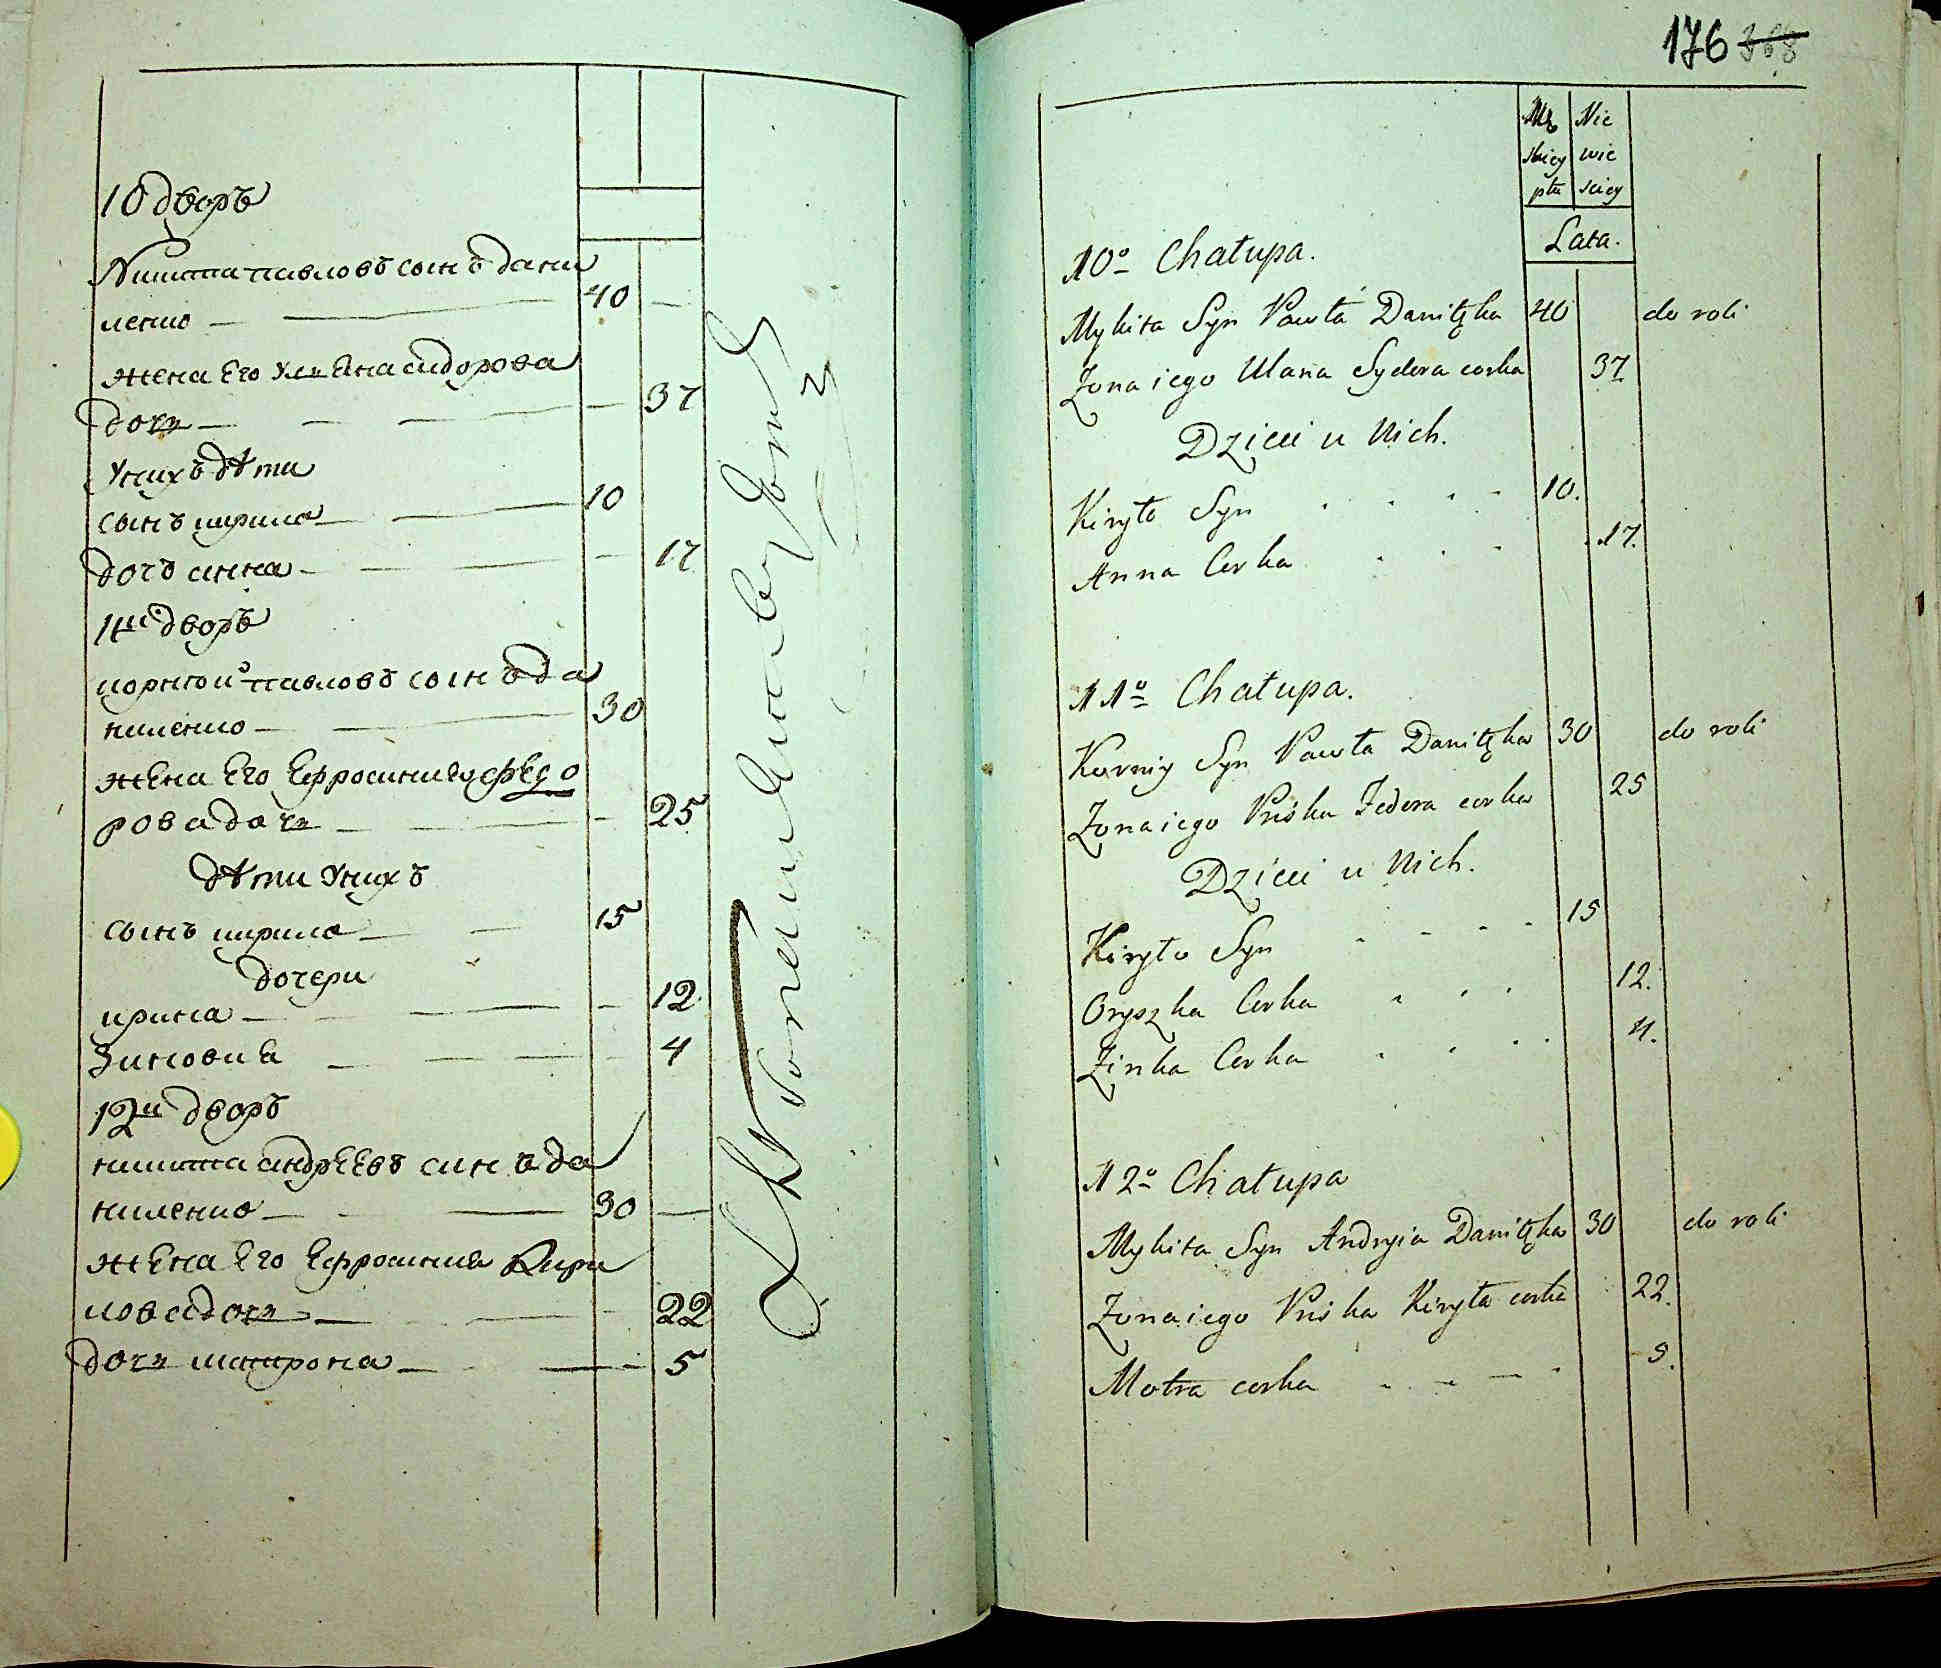 10 дворъ
Никита павловъ сынъ дани
ленко 40
жена Его Улияна сидорова
дочь 37
у нихъ дѣти
сынъ кирила 10
дочь анна 17
11й дворъ
корней павловъ сынъ да
ниленко 30
жена Его Ефросиния федо
рова дочь 25
дѣти у нихъ
сынъ кирила 15
дочери
ирина 12
Зиновия 4
12й дворъ
никита андрЕЕвъ синъ да
ниленко 30
жена Его Ефросиния Кири
лова дочь 22
дочь матрона 5
176 368
Mę Nie
skiey wie
płci sciey
Lata.
10º Chałupa.
Mykita Syn Pawła Daniłęka 40 do roli
Zona iego Ulana Sydora corka 37
Dzieci u Nich.
Kiryło Syn 10.
Anna Corka 17.
11º Chałupa.
Korniy Syn Pawła Daniłęka 30 do roli
Zona iego Priśka Fedora corka 25
Dzieci u Nich.
Kiryło Syn 15
Oryszka Corka 12.
Zinka Corka 4.
12º Chałupa
Mykita Syn Andryia Daniłęka 30 do roli
Zona iego Priśka Kiryła corka 22.
Motra corka 5.